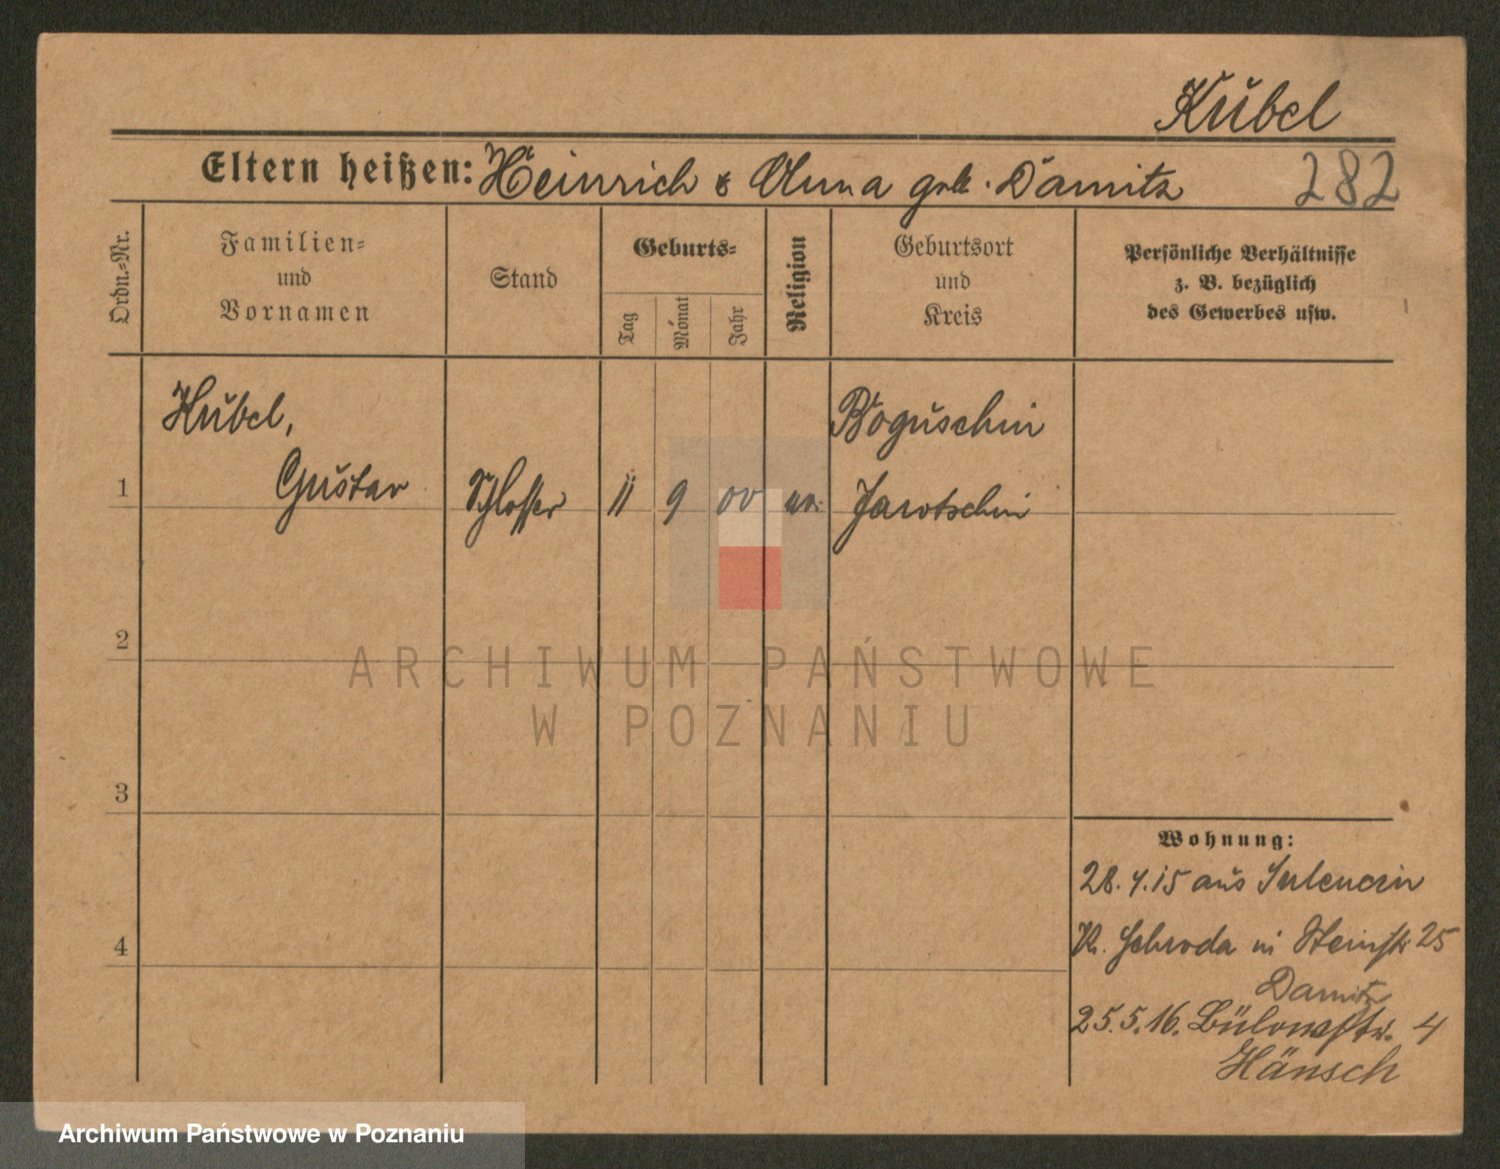 Kubel
Eltern heißen: Heinrich & Anna geb. Damitz 282
Ordn.=Nr.
Familien=
und
Vornamen
Stand
Geburts=
Tag
Monat
Jahr
Religion
Geburtsort
und
Kreis
Persönliche Verhältnisse
z. B. bezüglich
des Gewerbes usw.
Kubel,
Boguschin
1 Gustav Schlosser 11 9 00 ev. Jarotschin
2
ARCHIWUM PAŃSTWOWE
W POZNANIU
3
Wohnung:
28. 4. 15 aus Sulencin
K. Schroda in Steinstr 25
4
Damitz
25. 5. 16. Bülowstr. 4
Hänsch
Archiwum Państwowe w Poznaniu